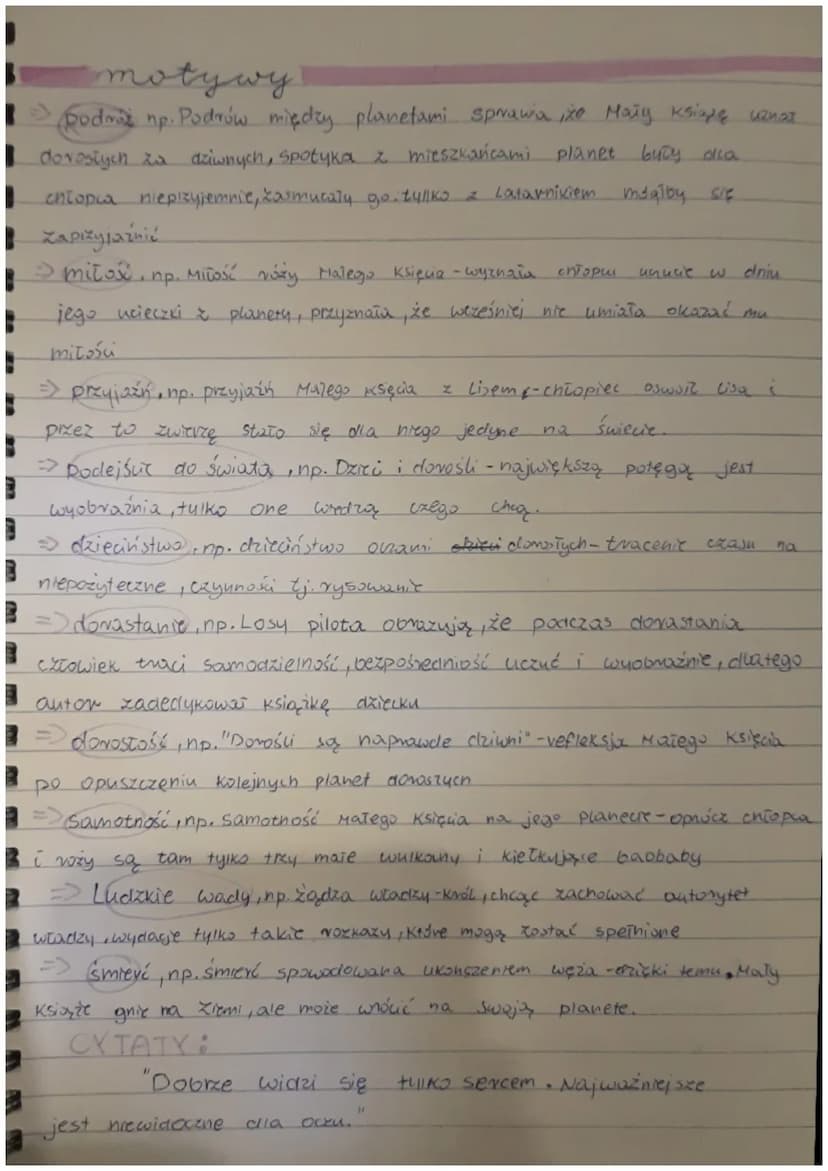 motywy
=> podróż np. Podrów między planetami sprawia, że Mały Książę uznaz
dorosłych za dziwnych, spotyka z mieszkańcami planet były dla
chłopca nieprzyjemnie, zasmucały go. tyllko z Latarnikiem mógłby się
zaprzyjaźnić
=> miłość, np. Miłość róży Małego Księcia - wyznała chłopcu uczucie w dniu
jego ucieczki z planety, przyznała, że wcześniej nie umiała okazać mu
miłości
=> przyjaźń, np. przyjaźń Małego Księcia z Lisem - chłopiec oswoił lisa i
przez to zwierzę stało się dla niego jedyne na świecie.
=> Podejście do świata, np. Dzieci i dorośli - największą potęgą jest
wyobraźnia, tylko one wiedzą czego chcą.
=> dzieciństwo, np. dzieciństwo oczami dzieci dorosłych - tracenie czasu na
niepożyteczne, czynności tj. rysowanie
=> dorastanie, np. Losy pilota obrazują, że podczas dorastania
człowiek traci samodzielność, bezpośredniość uczuć i wyobraźnie, dlatego
autor zadedykował książkę dziecku
=> dorosłość, np. "Dorośli są naprawde dziwni" - refleksja Małego Księcia
po opuszczeniu kolejnych planet dorosłych
=> Samotność, np. samotność Małego Księcia na jego planecie - oprócz chłopca
i róży są tam tylko trzy małe wulkany i kiełkujące baobaby
=> Ludzkie wady, np. żądza władzy - król, chcąc zachować autorytet
władzy, wydaje tylko takie rozkazy, które mogą zostać spełnione
=> śmierć, np. śmierć spowodowana ukąszeniem węża - dzięki temu, Mały
Książe gnie na Ziemi, ale może wrócić na swoją planete.
CYTATY:
"Dobrze widzi się tylko sercem. Najważniejsze
jest niewidoczne dla oczu."